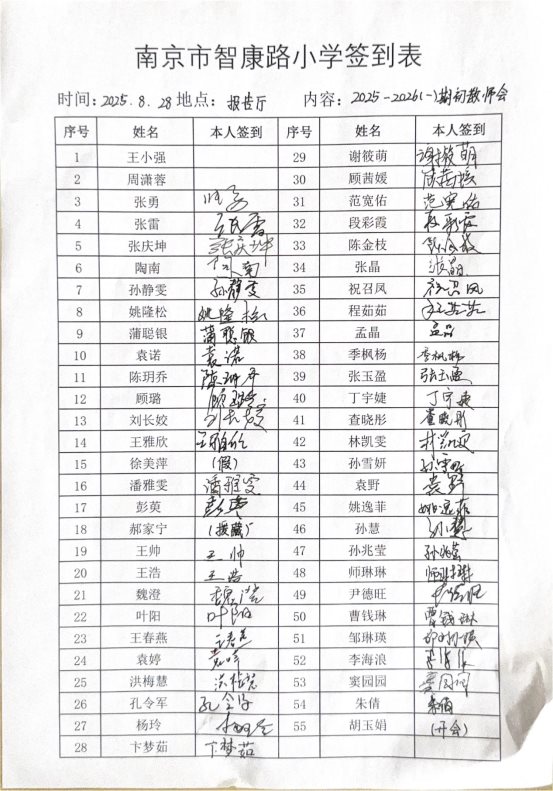 南京市智康路小学签到表
时间：2025.8.28 地点：报告厅 内容：2025-2026(一)期初教师会
序号 姓名 本人签到 序号 姓名 本人签到
1 王小强 29 谢筱萌 谢筱萌
2 周潇蓉 30 顾茜媛
3 张勇 31 范宽佑 范宽佑
4 张雷 张雷 32 段彩霞 段彩霞
5 张庆坤 张庆坤 33 陈金枝
6 陶南 34 张晶
7 孙静雯 孙静雯 35 祝召凤 祝召凤
8 姚隆松 姚隆松 36 程茹茹 程茹茹
9 蒲聪银 蒲聪银 37 孟晶 孟晶
10 袁诺 袁诺 38 季枫杨 季枫杨
11 陈玥乔 陈玥乔 39 张玉盈 张玉盈
12 顾璐 40 丁宇婕 丁宇婕
13 刘长姣 刘长姣 41 查晓彤 查晓彤
14 王雅欣 王雅欣 42 林凯雯 林凯雯
15 徐美萍 (假) 43 孙雪妍
16 潘雅雯 潘雅雯 44 袁野 袁野
17 彭英 彭英 45 姚逸菲 姚逸菲
18 郝家宁 (援藏) 46 孙慧 孙慧
19 王帅 王帅 47 孙兆莹 孙兆莹
20 王浩 王浩 48 师琳琳 师琳琳
21 魏澄 魏澄 49 尹德旺
22 叶阳 叶阳 50 曹钱琳 曹钱琳
23 王春燕 51 邹琳瑛
24 袁婷 52 李海浪
25 洪梅慧 53 窦园园 窦园园
26 孔令军 54 朱倩 朱倩
27 杨玲 55 胡玉娟 (开会)
28 卞梦茹 卞梦茹